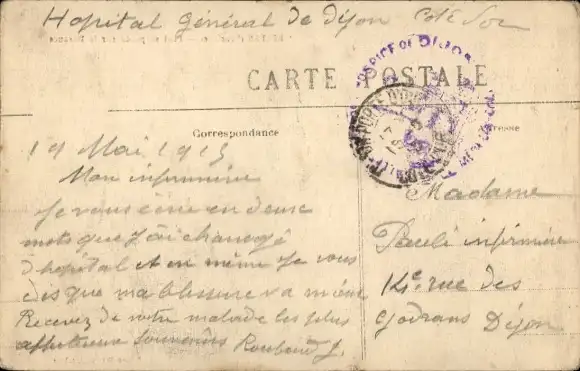 Hopital Général de Dijon Côté d'or
CARTE POSTALE
HOSPICE DE DIJON
Correspondance
Adresse
19 Mai 1915
Mon infirmière
Je vous écrie en deux
mots que J'ai changé
d'hopital et en même Je vous
dis que ma blessure va mieux
Recevez de votre malade les plus
affectueux Souvenirs J.
Madame
Pauli infirmière
14e rue des
Godrans Dijon